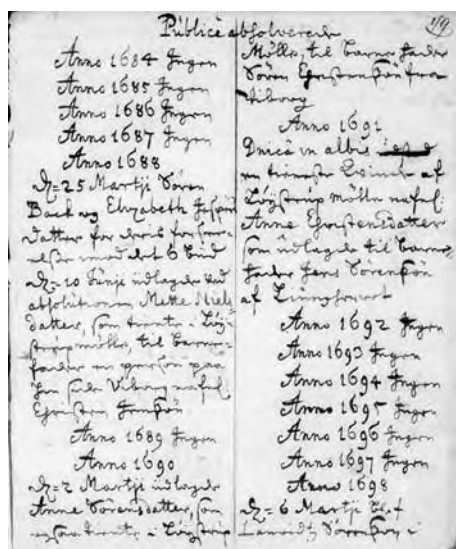 Publicè absolverede
119
Anno 1684 Ingen
Anno 1685 Ingen
Anno 1686 Ingen
Anno 1687 Ingen
Anno 1688
25 Martji Søren
Back og Elizabeth Jespers
datter for deris for seer-
else imod det 6 bud
10 Junji udlagde ved
absolutionen Mette Niels
datter, som tiente i Løj-
strup mølle, til barne-
fader en person paa
hin side Viborg nafnl.
Christen Jensøn
Anno 1689 Ingen
Anno 1690
2 Martji udlagde
Anne Sørensdatter, som
ogsaa tiente i Løjstrup
Mølle til barne fader
Søren Christensøn fra
Viborg
Anno 1691
Dnica in albis
en tieneste qvinde af
Løjstrup mølle nafnl.
Anne Christensdatter
som udlagde til barne-
fader Jens Sørensøn
af
Anno 1692 Ingen
Anno 1693 Ingen
Anno 1694 Ingen
Anno 1695 Ingen
Anno 1696 Ingen
Anno 1697 Ingen
Anno 1698
6 Martji bl. f
Lauridtz Sørensøn i